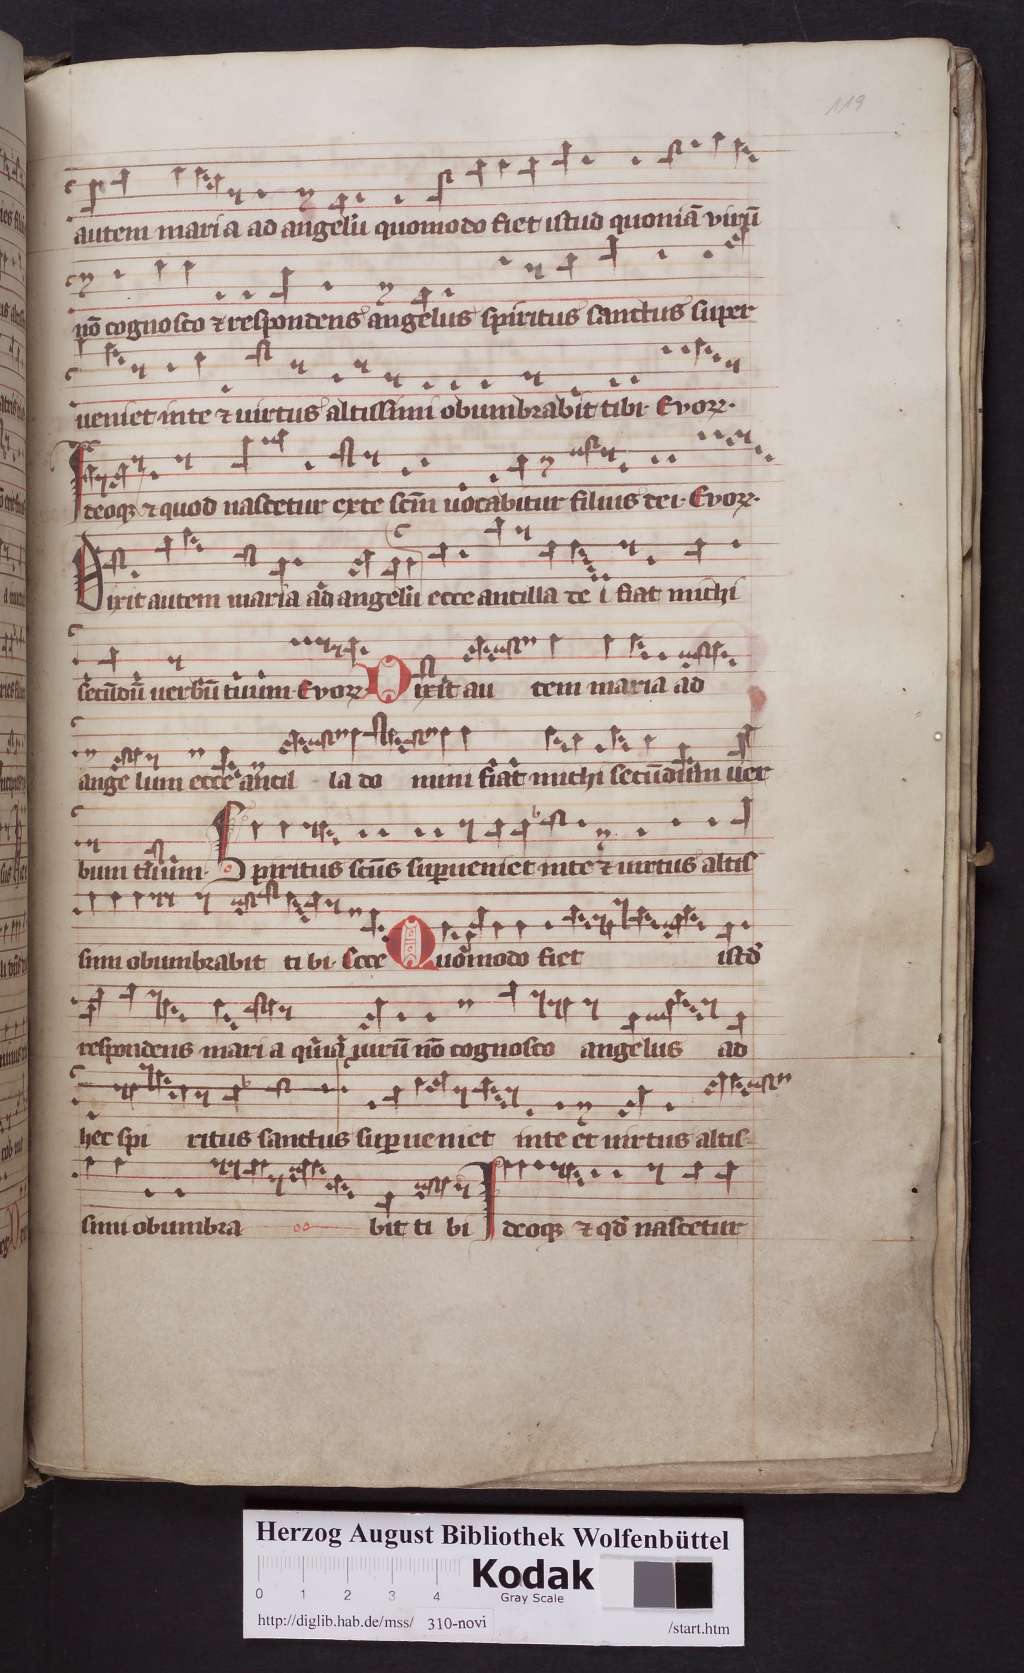 119
autem maria ad angelū quomodo fiet istud quoniā virū
nō cognosco ⁊ respondens angelus spiritus sanctus super
ueniet in te ⁊ uirtus altissimi obumbrabit tibi· Evoꝝ·
Ideoqȝ ⁊ quod nascetur ex te scm̄ uocabitur filius dei· Evoꝝ·
Dixit autem maria ad angelū ecce ancilla dn̄i fiat michi
secūdū uerbū tuum· Evoꝝ Dixit au tem maria ad
ange lum ecce ancil la do mini fiat michi secūdum uer
bum tuum· Spiritus scūs suꝑueniet in te ⁊ uirtus altis
simi obumbrabit ti bi· Ecce Quomodo fiet istđ
respondens mari a qm̄ uirū nō cognosco angelus ad
hec spi ritus sanctus suꝑueniet in te et uirtus altis
simi obumbra bit ti bi Ideoqȝ ⁊ qđ nascetur
Herzog August Bibliothek Wolfenbüttel
0 1 2 3 4
Kodak
Gray Scale
http://diglib.hab.de/mss/ 310-novi /start.htm